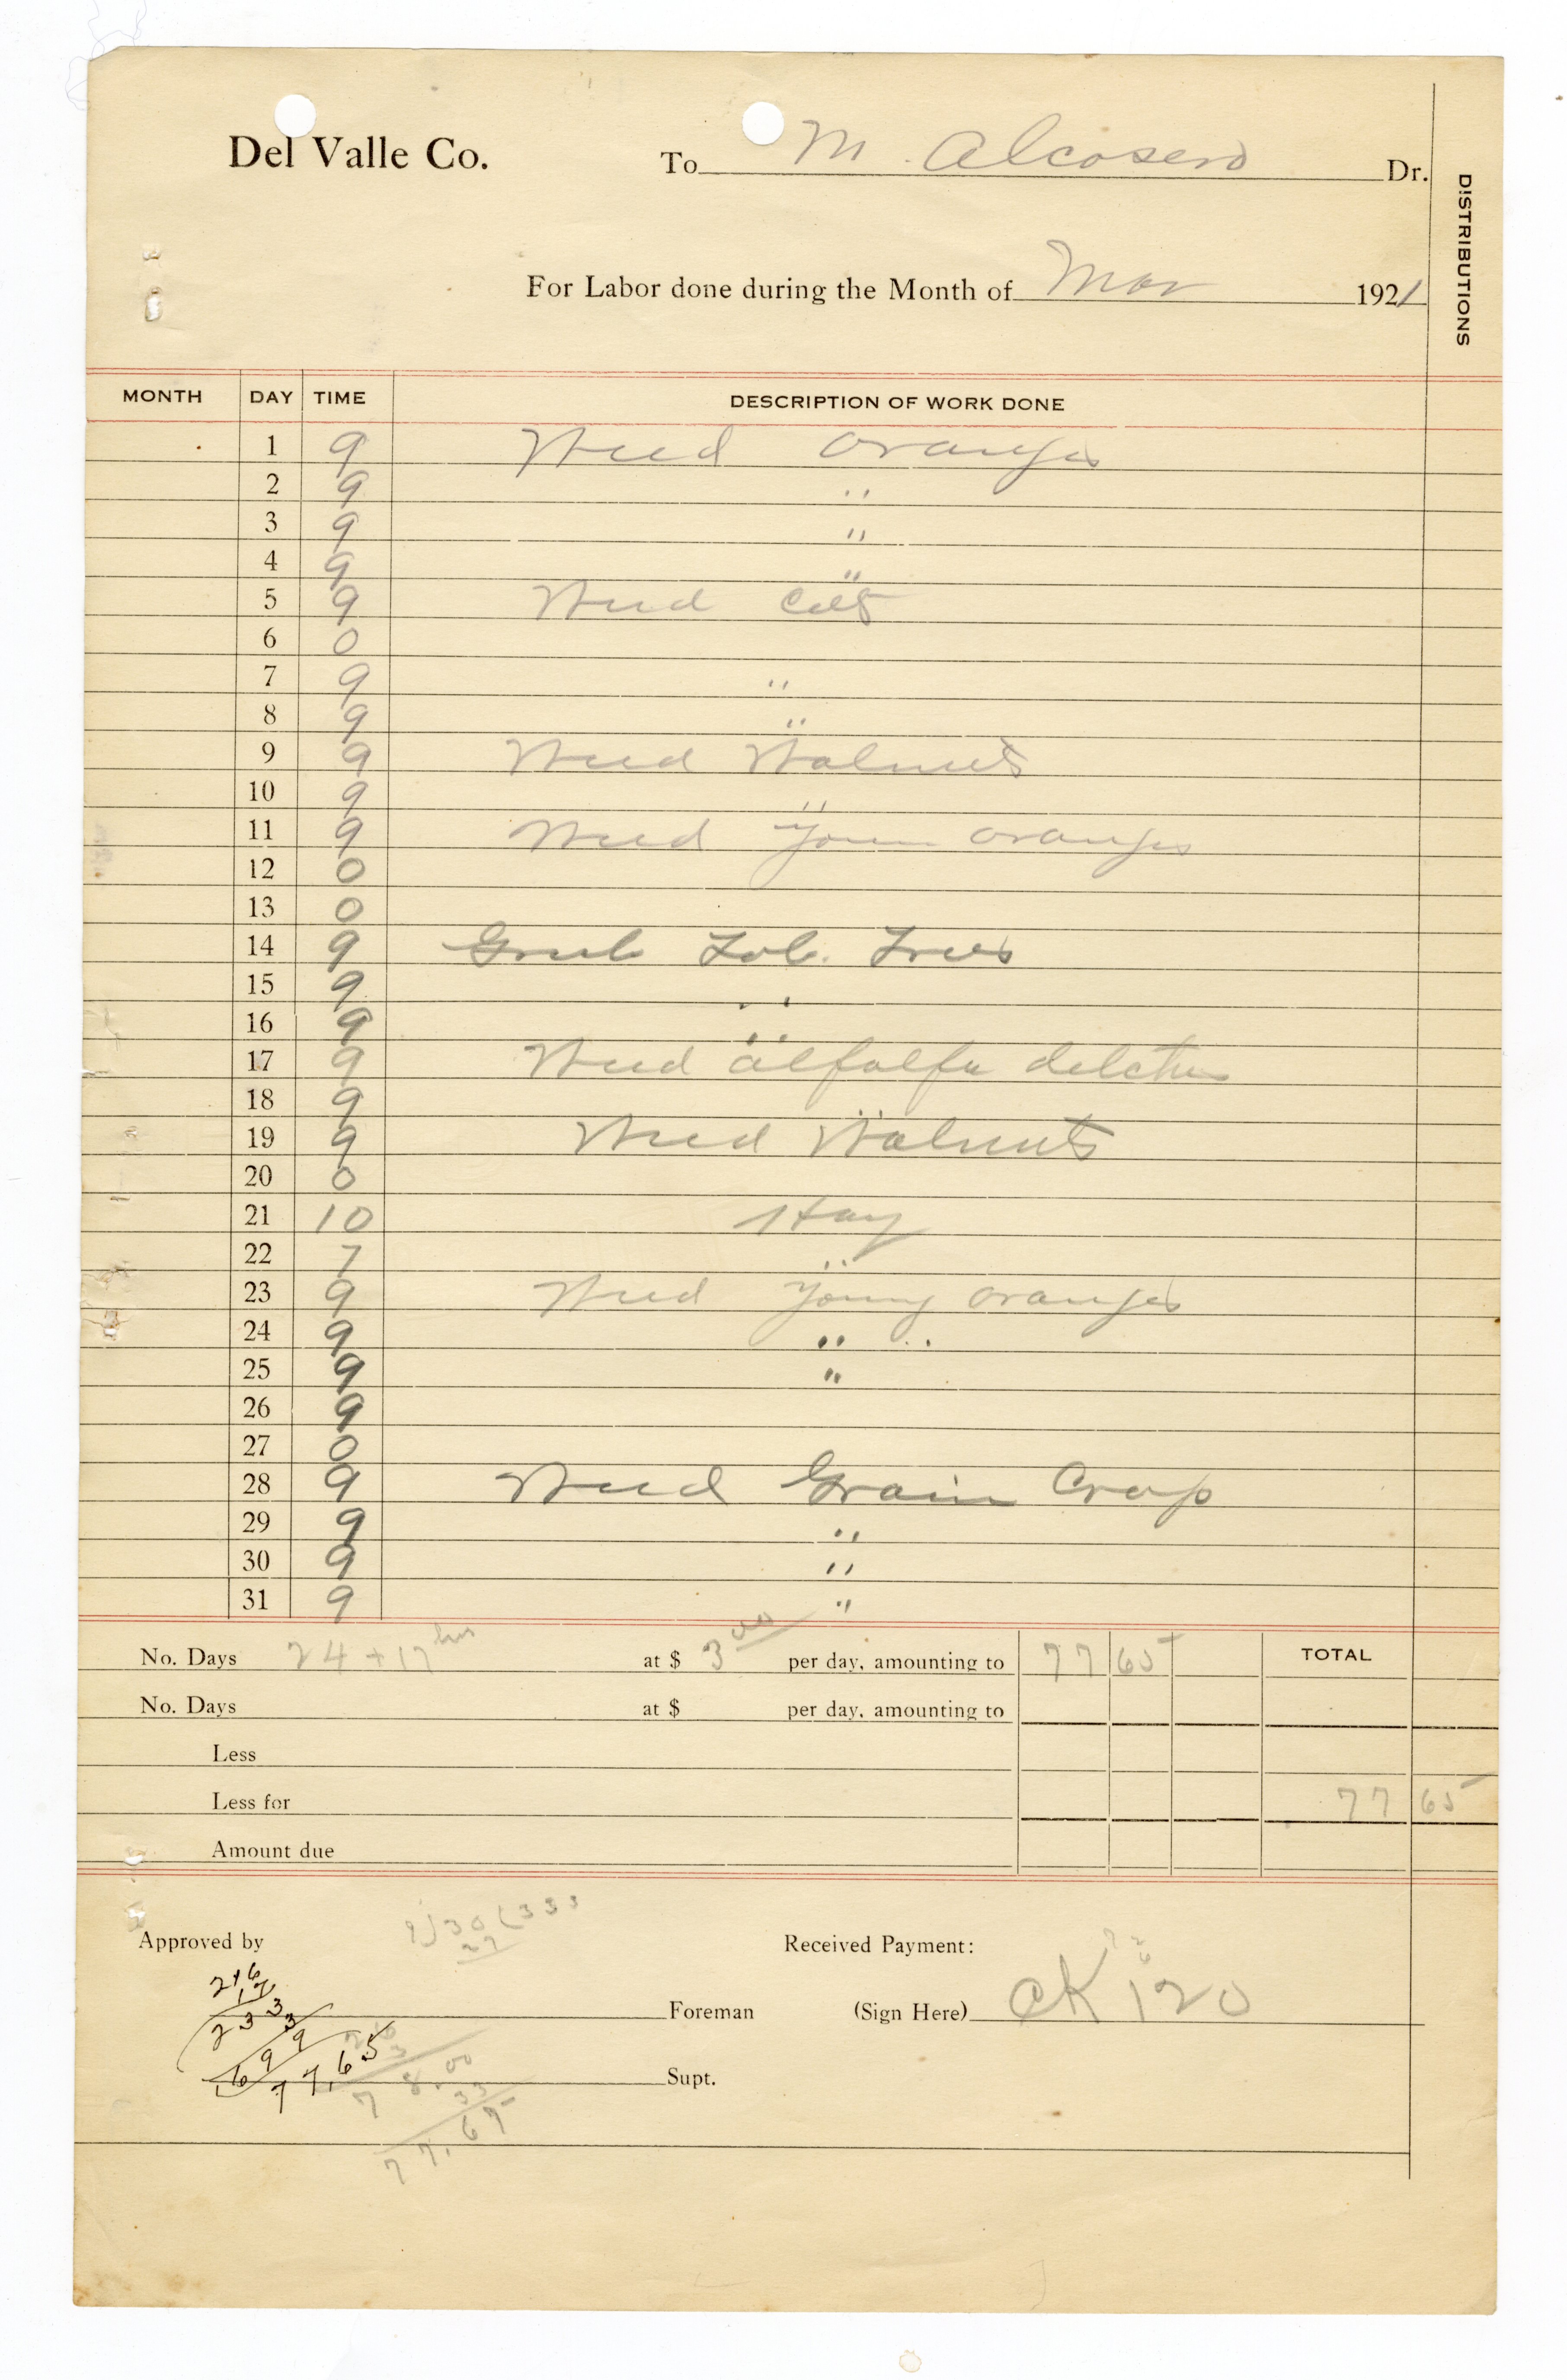 Del Valle Co. To M. Alcosero Dr.
DISTRIBUTIONS
For Labor done during the Month of Mar 1921
MONTH DAY TIME DESCRIPTION OF WORK DONE
1 9 Weed oranges
2 9 "
3 9 "
4 9 "
5 9 Weed
6 0
7 9 "
8 9 "
9 9 Weed Walnuts
10 9 "
11 9 Weed oranges
12 0
13 0
14 9 Grub Trees
15 9 "
16 9 "
17 9 Weed alfalfa
18 9 "
19 9 Weed Walnuts
20 0
21 10 Hay
22 7 "
23 9 Weed young oranges
24 9 " "
25 9 "
26 9
27 0
28 9 Weed Grain Crop
29 9 "
30 9 "
31 9 "
No. Days 24 + 17 hrs at $ 3 00 per day, amounting to 77 65 TOTAL
No. Days at $ per day, amounting to
Less
Less for 77 65
Amount due
9)30(333
27
Approved by Received Payment:
216
17
233
Foreman (Sign Here) CK 120
3
699
77.65
Supt.
78.00
33
77.67